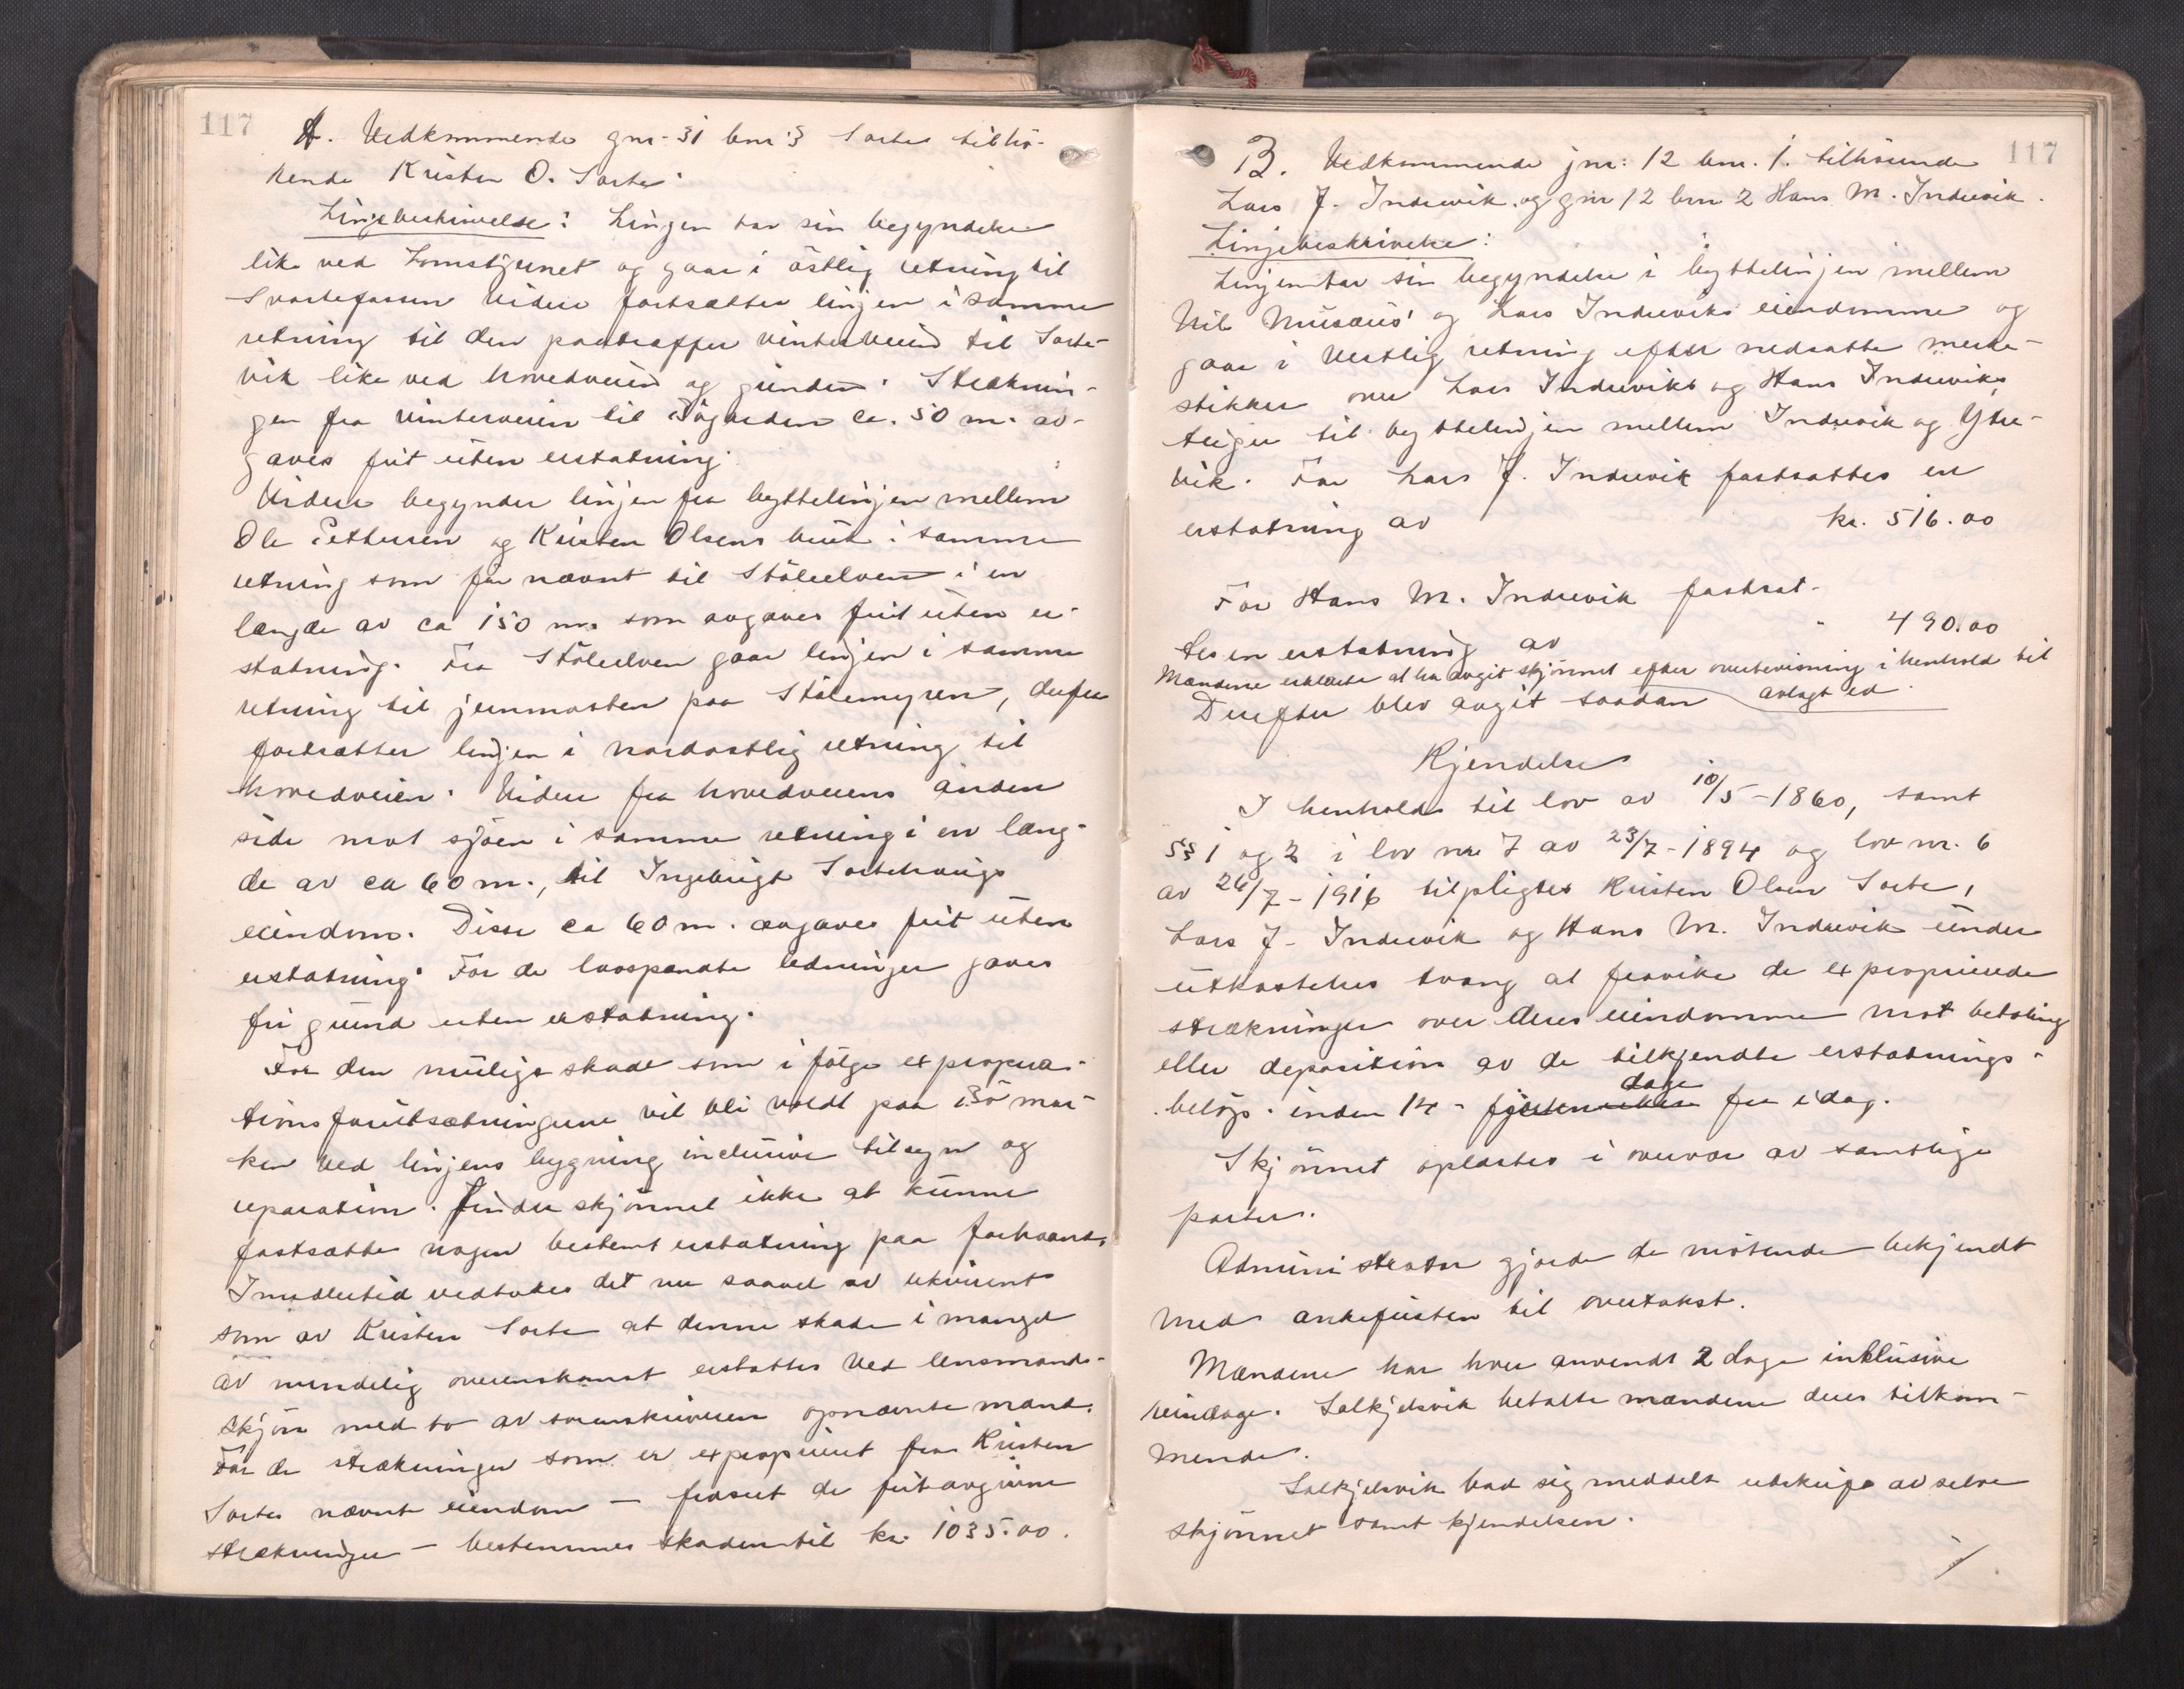 117
A. Vedkommende gnr. 31 bnr 3 Sorte tilhö-
rende Kristen O. Sorte.
Linjebeskrivelse: Linjen tar sin begyndelse
like ved Lomstjernet og gaar i östlig retning til
Svartefossen videre fortsætter linjen i samme
retning til den paatræffer vinterveien til Sorte-
vik like ved hovedveien og grinden. Stræknin-
gen fra vinterveien til ca. 50 m. av-
gaves frit uten erstatning.
Videre begynder linjen fra byttelinjen mellem
Ole Petersen og Kristen Olsens bruk i samme
retning som før nævnt til Stöleelven i en
længde av ca 150 m. som avgaves frit uten er-
statning. Fra Stöleelven gaar linjen i samme
retning til jernmasten paa Stölemyren, derfra
fortsætter linjen i nordostlig retning til
hovedveien. Videre fra hovedveiens anden
side mot sjöen i samme retning i en læng-
de av ca 60 m., til Ingebrigt Sortehaugs
eiendom. Disse ca 60 m. avgaves frit uten
erstatning. For de lavspændte ledninger gaves
fri grund uten erstatning.
For den mulige skade som i fölge expropria-
tionsforutsætningerne vil bli voldt paa mar-
ken ved linjens bygning inclusive tilsyn og
reparation. finder skjönnet ikke at kunne
fastsætte nogen bestemt erstatning paa forhaand.
Imidlertid vedtokes det nu saavel av rekvirent
som av Kristen Sorte at denne skade i mangel
av mindelig overenskomst erstattes ved lensmands-
skjön med to av sorenskriveren opnævnte mænd.
For de strækninger som er expropriert fra Kristen
Sortes nævnte eiendom – fraset de frit avgivne
strækninger – bestemmes skaden til kr. 1035.00.
117
B. Vedkommende gnr: 12 bnr. 1. tilhörende
Lars J. Indrevik, og gnr 12 bnr 2 Hans M. Indrevik.
Linjebeskrivelse:
Linjen tar sin begyndelse i byttelinjen mellem
Nils Musæus' og Lars Indreviks eiendomme og
gaar i vestlig retning efter nedsatte merke-
stikker over Lars Indreviks og Hans Indreviks
teiger til byttelinjen mellem Indrevik og Ytre-
vik. For Lars J. Indrevik fastsattes en
erstatning av kr. 516.00
For Hans M. Indrevik fastsat-
tes en erstatning av " 490.00
Mændene erklærte at ha avgit skjönnet efter overbevisning i henhold til
avlagt ed.
Derefter blev avgit saadan
Kjendelse
I henhold til lov av 10/5-1860, samt
§§ 1 og 2 i lov nr 7 av 23/7-1894 og lov nr. 6
av 26/7-1916 tilpligtes Kristen Olsen Sorte,
Lars J. Indrevik og Hans M. Indrevik under
utkastelses tvang at fravike de exproprierede
strækninger over deres eiendomme mot betaling
eller deposition av de tilkjendte erstatnings-
belöp. inden 14 – dage fra idag.
Skjönnet oplæstes i overvær av samtlige
parter.
Administrator gjorde de mötende bekjendt
med ankefristen til overtakst.
Mændene har hver anvendt 2 dage inklusive
reisedage. Salkjelsvik betalte mændene deres tilkom-
mende.
Salkjelsvik bad sig meddelt utskript av selve
skjönnet samt kjendelsen.